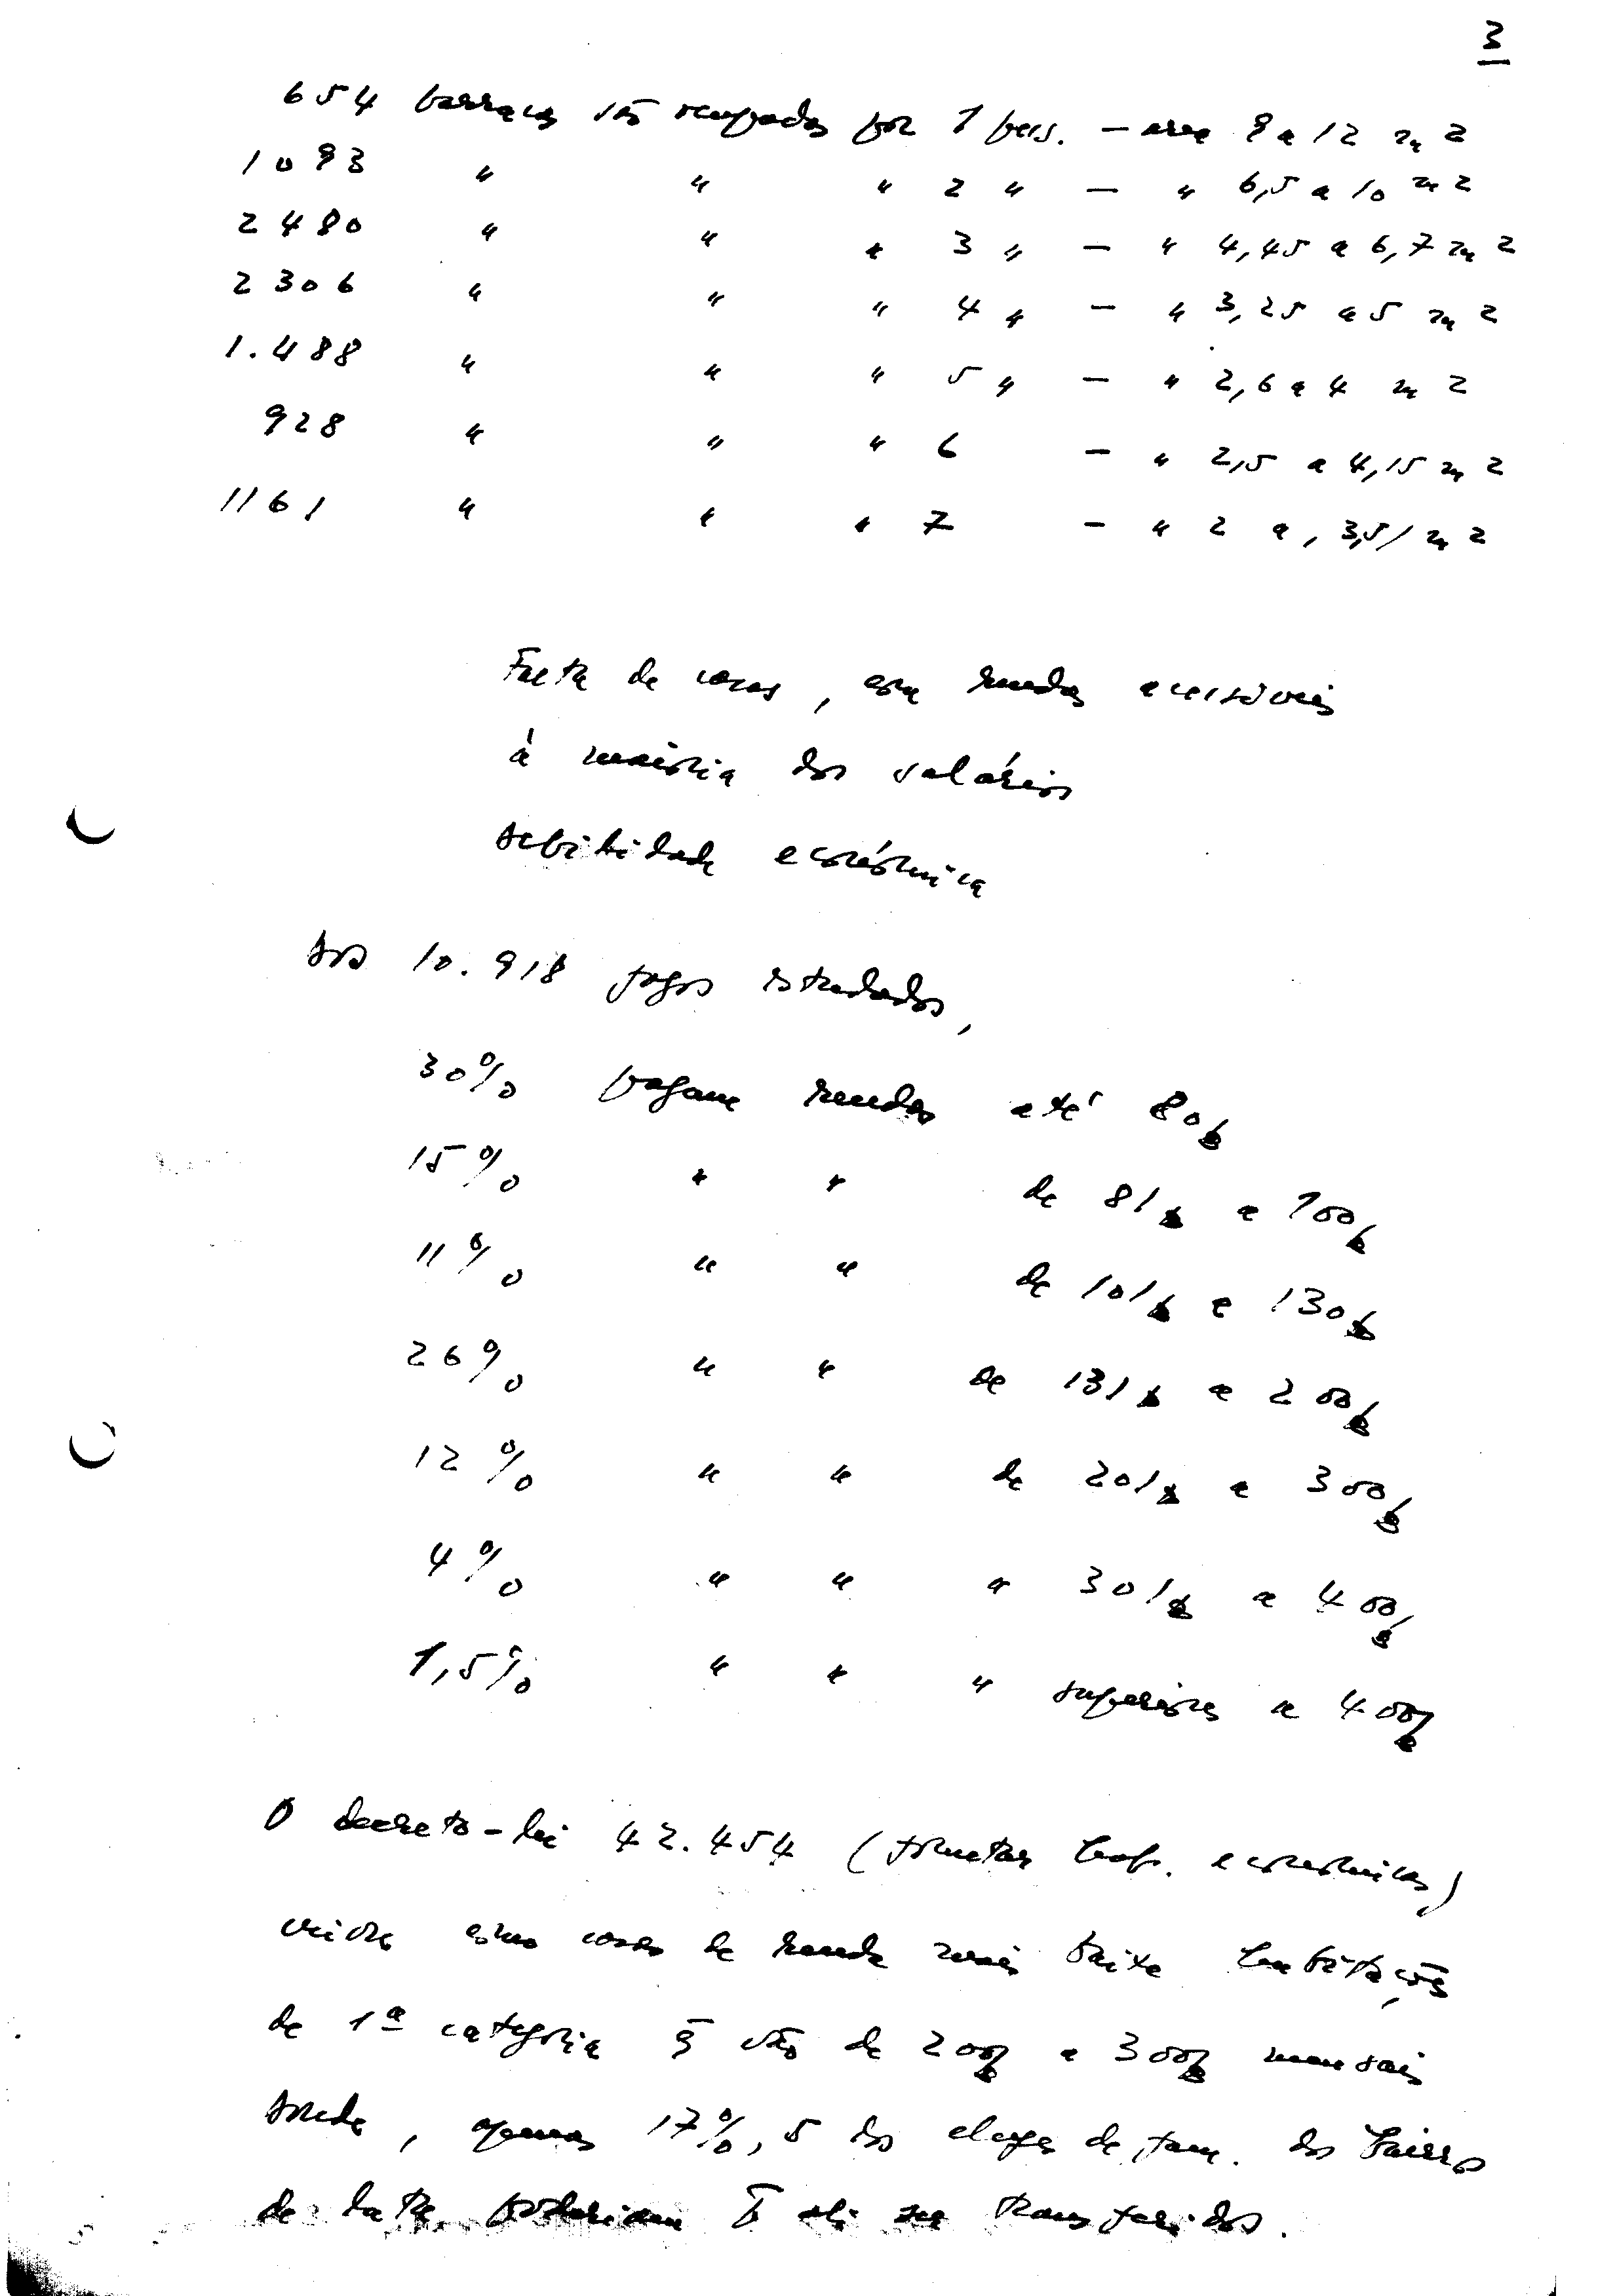 3
654 barracas são ocupadas por 1 pess. — area 8 a 12 m2
1083 " " " 2 " — " 6,5 a 10 m2
2480 " " " 3 " — " 4,45 a 6,7 m2
2306 " " " 4 " — " 3,25 a 5 m2
1.488 " " " 5 " — " 2,6 a 4 m2
928 " " " 6 — " 2,5 a 4,15 m2
1161 " " " 7 — " 2 a, 3,5/ m2
Falta de casas, com rendas acessíveis
à maioria dos salários
debilidade económica
Dos 10.918 fogos estudados,
30% pagam rendas até 80$
15% " " de 81$ a 100$
11% " " de 101$ a 130$
26% " " de 131$ a 200$
12% " " de 201$ a 300$
4% " " " 301$ a 400$
1,5% " " " superiores a 400$
O decreto-lei 42.454 ( económicas)
como casas de renda mais baixa habitações
de 1ª categoria q̄ vão de 200$ a 300$ mensais
Donde, apenas 17%,5 dos chefes de fam. dos bairros
de lata poderiam p̄ ali ser transferidos.